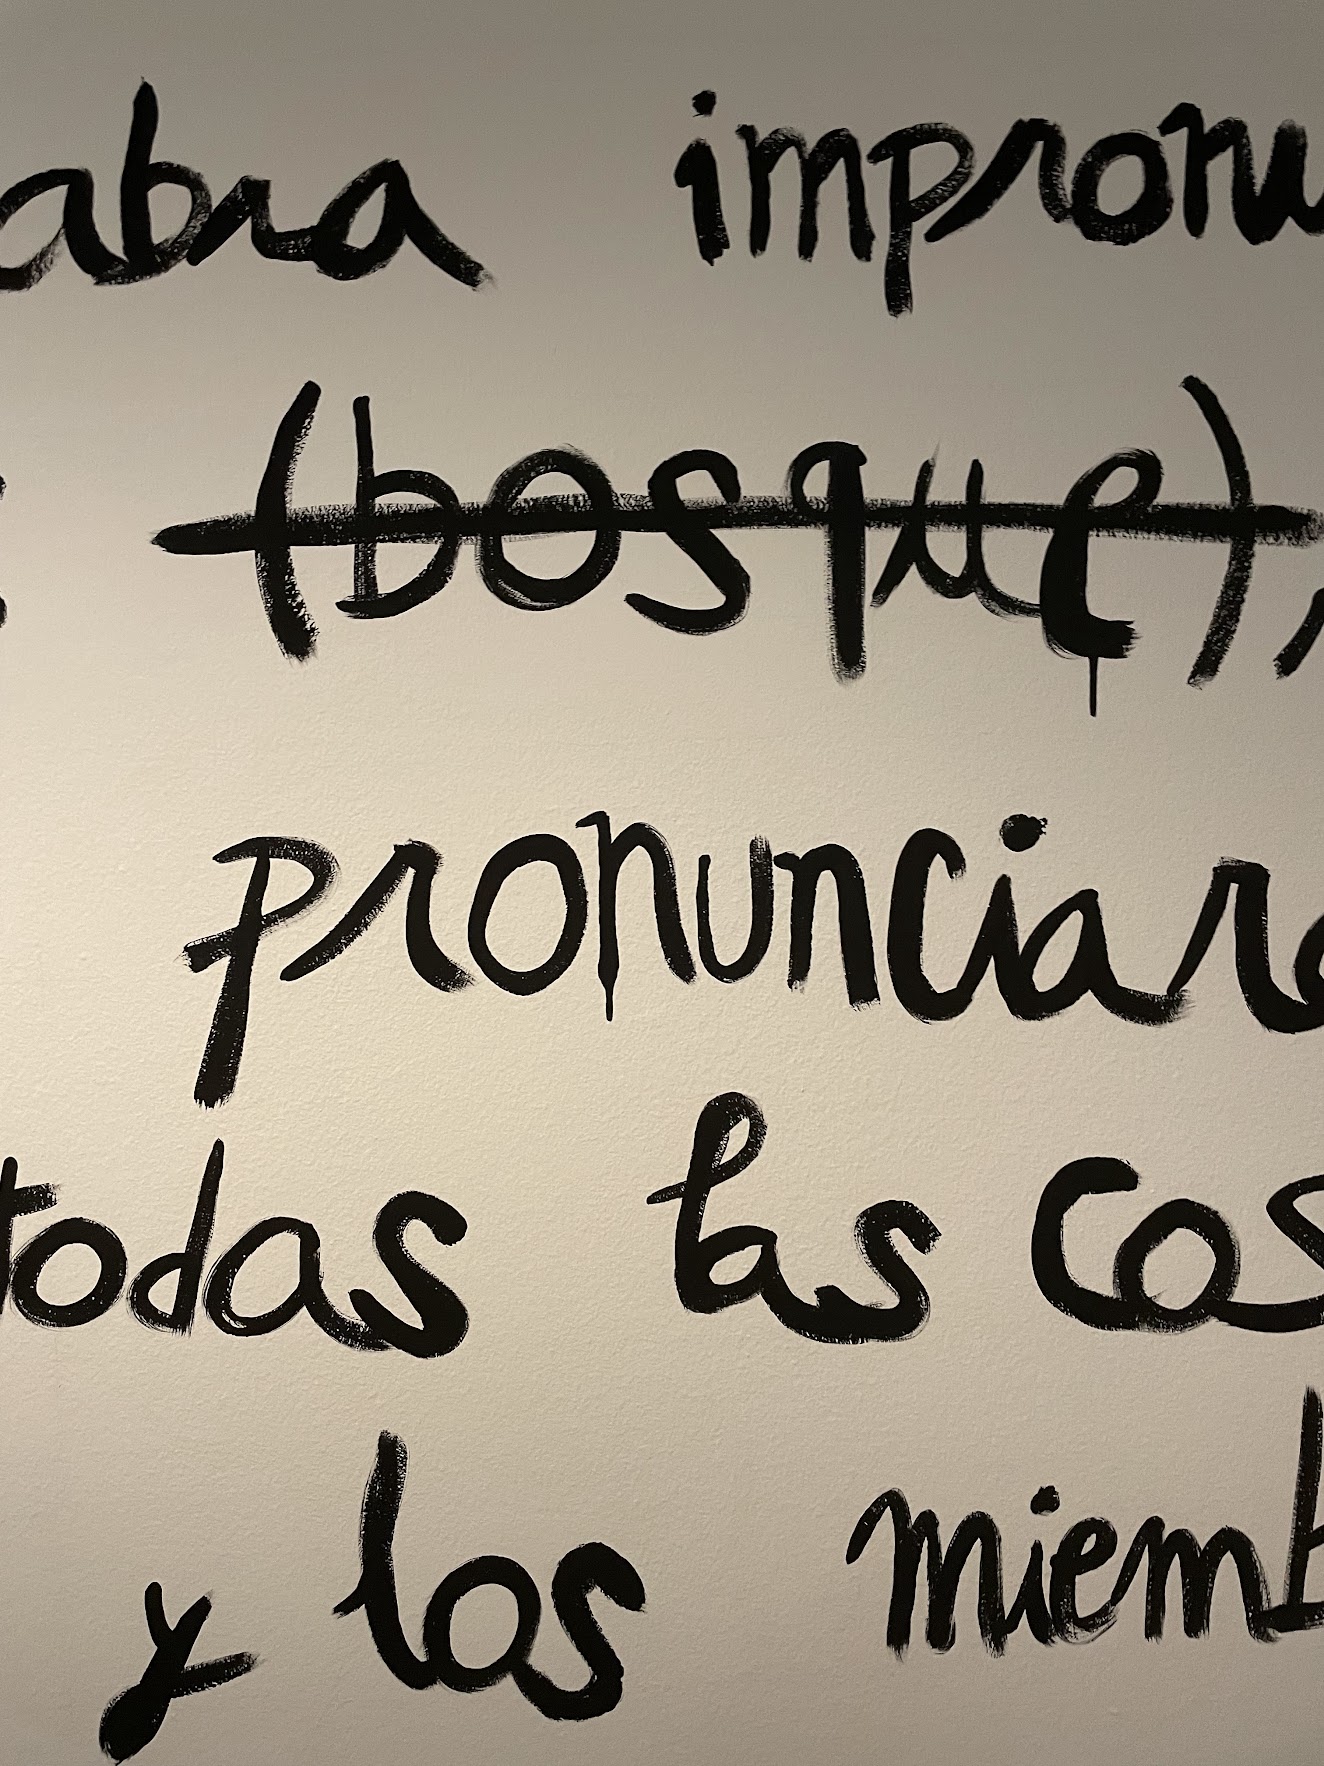 abra impronu
(bosque),
pronunciar
todas las cos
y los miemb